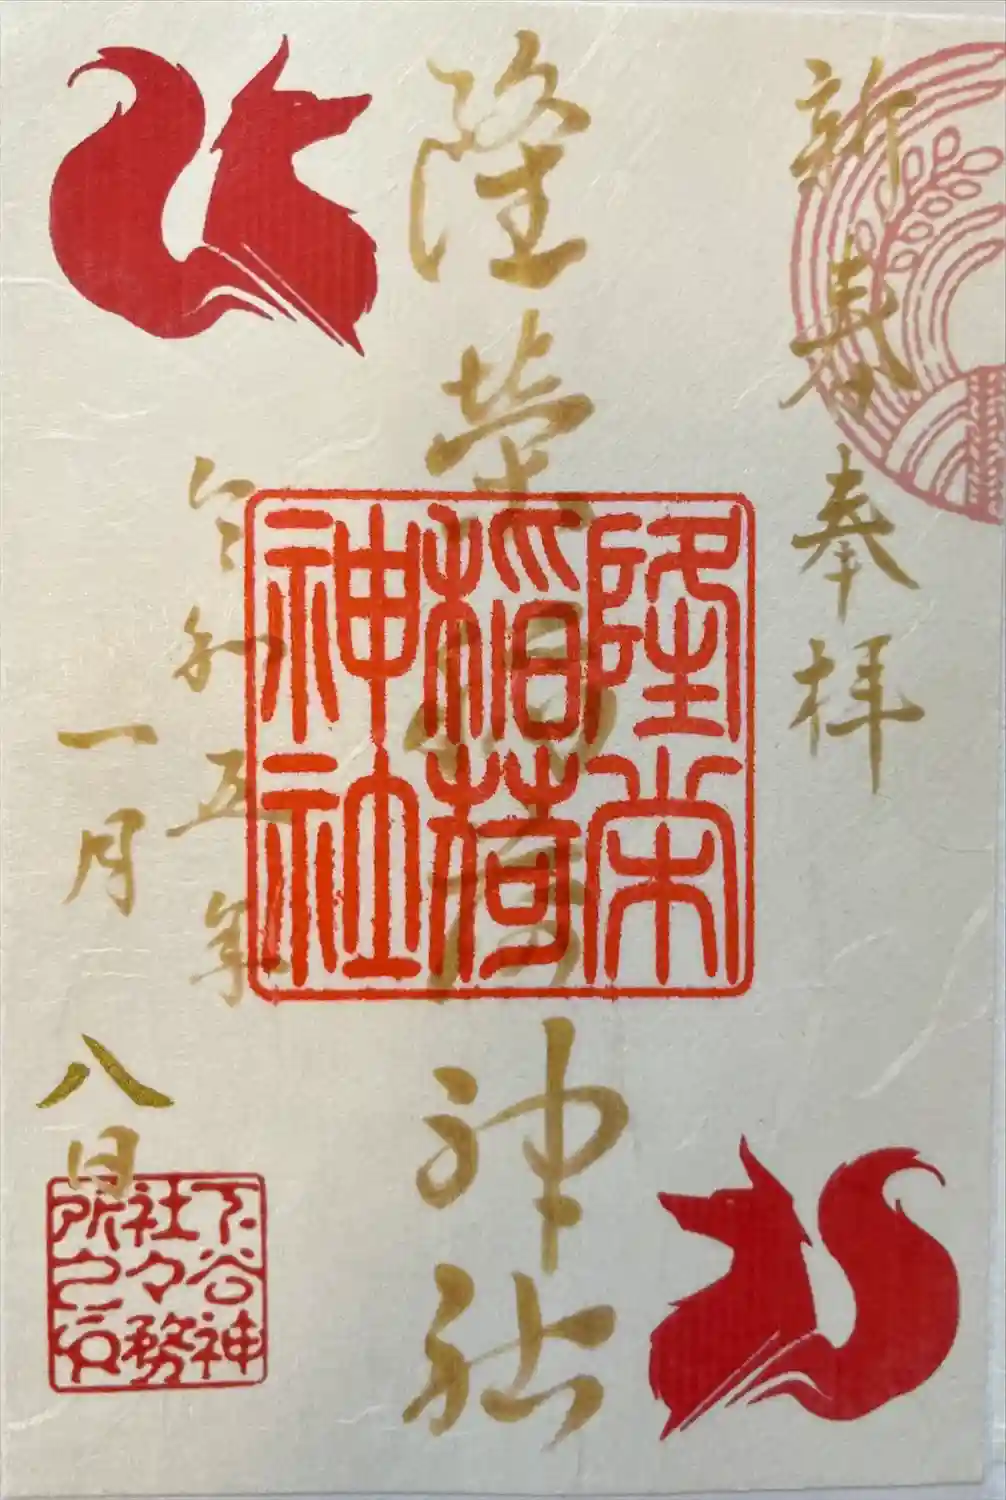 新春奉拝
隆栄稲荷神社
隆栄
稲荷
神社
令和五年
一月八日
下谷神
社々務
所之印